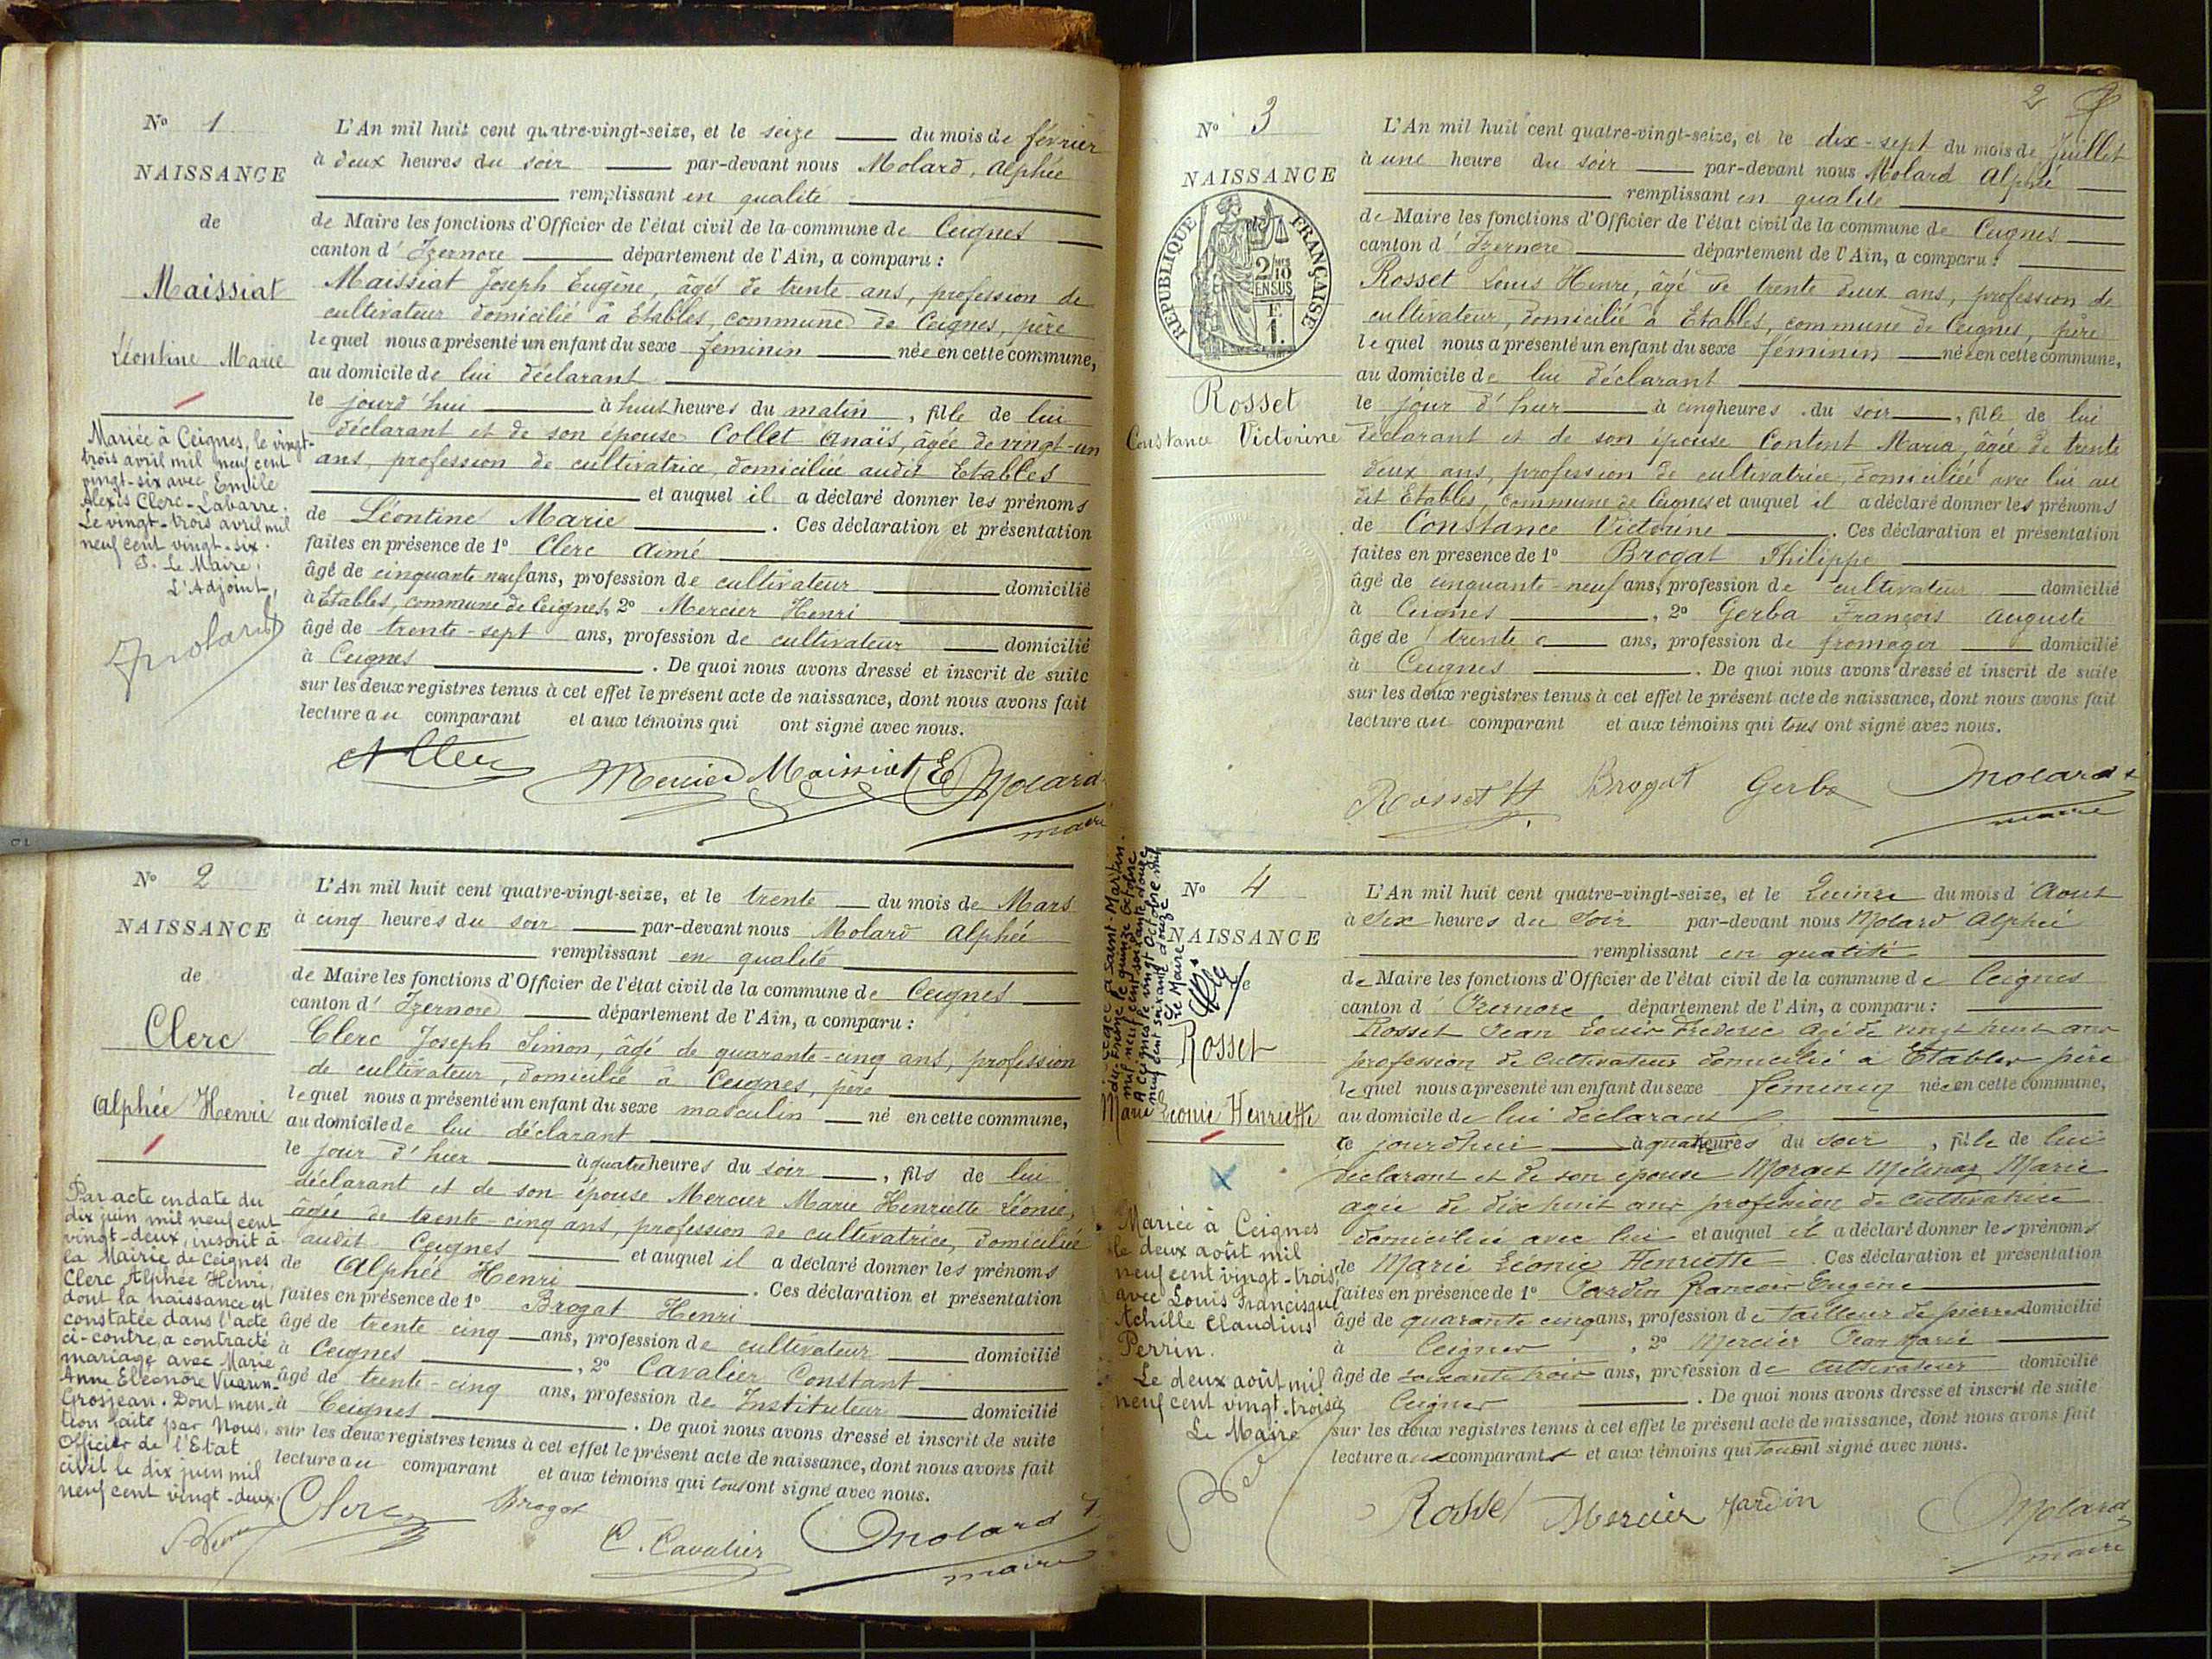 N° 1
NAISSANCE
de
Maissiat
Léontine Marie
Mariée à Ceignes, le vingt-
trois avril mil neuf cent
vingt-six avec Emile
Alexis Clerc-Labarre.
Le vingt-trois avril mil
neuf cent vingt-six.
P. Le Maire:
L'Adjoint,
L'An mil huit cent quatre-vingt-seize, et le seize du mois de février
à deux heures du soir par-devant nous Molard, Alphée
remplissant en qualité
de Maire les fonctions d'Officier de l'état civil de la commune de Ceignes
canton d'Izernore département de l'Ain, a comparu :
Maissiat Joseph Eugène, âgé de trente ans, profession de
cultivateur domicilié à Etables, commune de Ceignes, père
lequel nous a présenté un enfant du sexe féminin née en cette commune,
au domicile de lui déclarant
le jourd'hui à huit heures du matin, fille de lui
déclarant et de son épouse Collet Anaïs, âgée de vingt-un
ans, profession de cultivatrice, domiciliée audit Etables
et auquel il a déclaré donner les prénoms
de Léontine Marie. Ces déclaration et présentation
faites en présence de 1° Clerc Aimé
âgé de cinquante neuf ans, profession de cultivateur domicilié
à Etables, commune de Ceignes, 2° Mercier Henri
âgé de trente-sept ans, profession de cultivateur domicilié
à Ceignes. De quoi nous avons dressé et inscrit de suite
sur les deux registres tenus à cet effet le présent acte de naissance, dont nous avons fait
lecture au comparant et aux témoins qui ont signé avec nous.
Mercier Maissiat E Molard
maire
N° 2
NAISSANCE
de
Clerc
Alphée Henri
Par acte en date du
dix juin mil neuf cent
vingt-deux, inscrit à
la Mairie de Ceignes
Clerc Alphée Henri,
dont la naissance est
constatée dans l'acte
ci-contre, a contracté
mariage avec Marie
Anne Eléonore Vuarin-
Grosjean. Dont men-
tion faite par Nous,
Officier de l'Etat
civil le dix juin mil
neuf cent vingt-deux.
L'An mil huit cent quatre-vingt-seize, et le trente du mois de Mars
à cinq heures du soir par-devant nous Molard Alphée
remplissant en qualité
de Maire les fonctions d'Officier de l'état civil de la commune de Ceignes
canton d'Izernore département de l'Ain, a comparu :
Clerc Joseph Simon, âgé de quarante-cinq ans, profession
de cultivateur, domicilié à Ceignes, père
lequel nous a présenté un enfant du sexe masculin né en cette commune,
au domicile de lui déclarant
le jour d'hier à quatre heures du soir, fils de lui
déclarant et de son épouse Mercier Marie Henriette Léonie,
âgée de trente-cinq ans, profession de cultivatrice, domiciliée
audit Ceignes et auquel il a déclaré donner les prénoms
de Alphée Henri. Ces déclaration et présentation
faites en présence de 1° Brogat Henri
âgé de trente cinq ans, profession de cultivateur domicilié
à Ceignes, 2° Cavalier Constant
âgé de trente-cinq ans, profession de Instituteur domicilié
à Ceignes. De quoi nous avons dressé et inscrit de suite
sur les deux registres tenus à cet effet le présent acte de naissance, dont nous avons fait
lecture au comparant et aux témoins qui tous ont signé avec nous.
Clerc Brogat C. Cavalier Molard
maire
2
N° 3
NAISSANCE
de
REPUBLIQUE FRANÇAISE
2/10 EN SUS
F. 1.
Rosset
Constance Victorine
L'An mil huit cent quatre-vingt-seize, et le dix-sept du mois de Juillet
à une heure du soir par-devant nous Molard Alphée
remplissant en qualité
de Maire les fonctions d'Officier de l'état civil de la commune de Ceignes
canton d'Izernore département de l'Ain, a comparu :
Rosset Louis Henri, âgé de trente deux ans, profession de
cultivateur, domicilié à Etables, commune de Ceignes, père
lequel nous a présenté un enfant du sexe féminin née en cette commune,
au domicile de lui déclarant
le jour d'hier à cinq heures du soir, fille de lui
déclarant et de son épouse Content Maria, âgée de trente
deux ans, profession de cultivatrice, domiciliée avec lui au
dit Etables, commune de Ceignes et auquel il a déclaré donner les prénoms
de Constance Victorine. Ces déclaration et présentation
faites en présence de 1° Brogat Philippe
âgé de cinquante-neuf ans, profession de cultivateur domicilié
à Ceignes, 2° Gerba François Auguste
âgé de trente ans, profession de fromager domicilié
à Ceignes. De quoi nous avons dressé et inscrit de suite
sur les deux registres tenus à cet effet le présent acte de naissance, dont nous avons fait
lecture au comparant et aux témoins qui tous ont signé avec nous.
Rosset H Brogat Gerba Molard
maire
N° 4
NAISSANCE
de
Rosset
Marie Léonie Henriette
Mariée à Ceignes
le deux août mil
neuf cent vingt-trois,
avec Louis Francisque
Achille Claudius
Perrin.
Le deux août mil
neuf cent vingt-trois
Le Maire
L'An mil huit cent quatre-vingt-seize, et le Quinze du mois d'Aout
à six heures du soir par-devant nous Molard Alphée
remplissant en qualité
de Maire les fonctions d'Officier de l'état civil de la commune de Ceignes
canton d'Izernore département de l'Ain, a comparu :
Rosset Jean Louis Frederic agé de vingt huit ans
profession de cultivateur domicilié à Etables père
lequel nous a présenté un enfant du sexe feminin née en cette commune,
au domicile de lui declarant
le jourdhui à quatre heures du soir, fille de lui
declarant et de son epouse Morget Mélinaz Marie
agée de dix huit ans profession de cultivatrice
domiciliée avec lui et auquel il a déclaré donner les prénoms
de Marie Léonie Henriette. Ces déclaration et présentation
faites en présence de 1° Jardin Eugène
âgé de quarante cinq ans, profession de tailleur de pierres domicilié
à Ceignes, 2° Mercier Jean Marie
âgé de soixante trois ans, profession de cultivateur domicilié
à Ceignes. De quoi nous avons dressé et inscrit de suite
sur les deux registres tenus à cet effet le présent acte de naissance, dont nous avons fait
lecture aux comparants et aux témoins qui tous ont signé avec nous.
Rosset Mercier Jardin Molard
maire